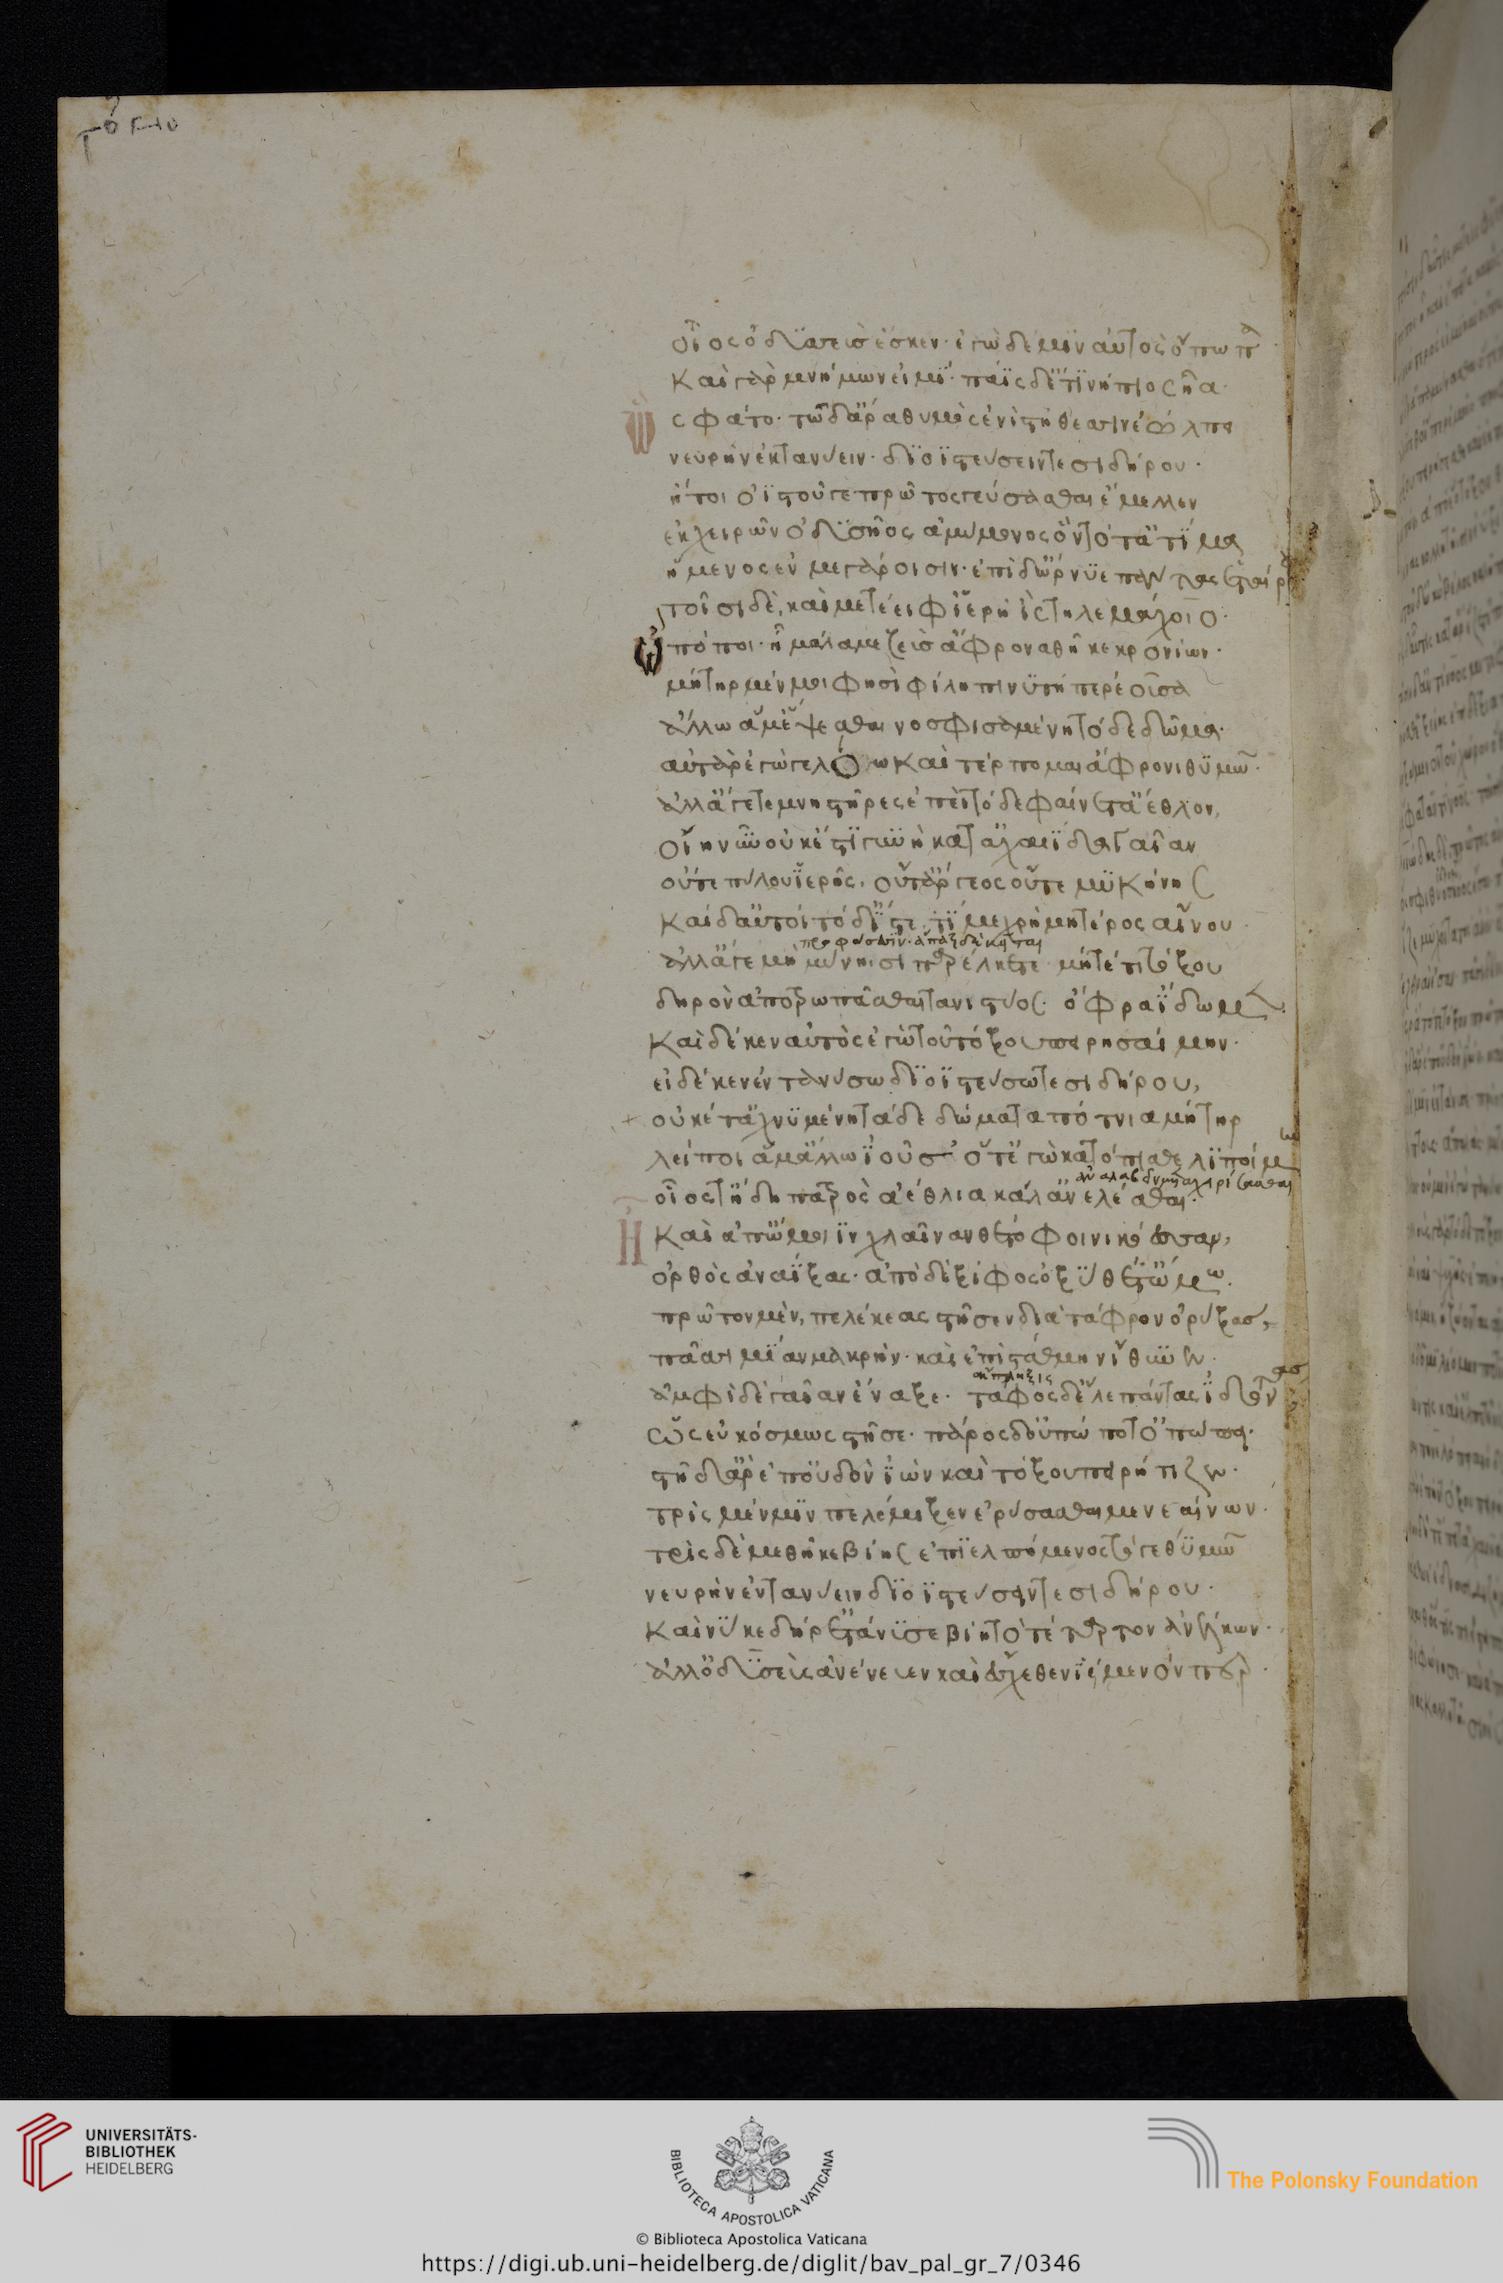 οἷος ὀδυσσεὺς ἔσκεν· ἐγὼ δέ μιν αὐτὸς ὄπωπα
καὶ γὰρ μνήμων εἰμΐ· πάϊς δ' ἔτϊ νήπιος ἦα·
ὣς φάτο· τῶ δ' ἄρα θυμὸς ἐνὶ στήθεσσιν ἐώλπει
νευρὴν ἐκτανύειν· διοϊστεύσειν τε σιδήρου·
ἤτοι ὀϊστοῦ γε πρῶτος γεύσασθαι ἔμελλεν
ἐκ χειρῶν ὀδυσῆος ἀμύμονος ὃν τότ' ἀτίμα
ἥμενος ἐν μεγάροισιν· ἐπὶ δ' ὤρνυε πάντας ἑταίρους
τοῖσι δὲ, καὶ μετέειφ' ἱερὴ ἲς τηλεμάχοιο·
ὢ πόποι· ἦ μάλα με ζεὺς ἄφρονα θῆκε κρονίων·
μήτηρ μέν μοι φησὶ φίλη πινυτή περ ἐοῦσα
ἄλλω ἅμ' ἕψεσθαι νοσφισαμένη τόδε δῶμα·
αὐτὰρ ἐγὼ γελόω καὶ τέρπομαι ἄφρονι θυμῶ·
ἀλλ' ἄγετε μνηστῆρες ἐπεὶ τόδε φαίνετ' ἄεθλον,
οἵη νῦν οὐκ ἔστι γυνὴ κατ' ἀχαιΐδα γαῖαν
οὔτε πύλου ἱερῆς, οὔτ' ἄργεος οὔτε μυκήνης
καὶ δ' αὐτοὶ τόδ' ἴστε, τί με χρὴ μητέρος αἴνου
προφάσεσιν· ἅπαξ δὲ κεῖται
ἀλλ' ἄγε μὴ μύνησι παρέλκετε μήτ' ἔτι τόξου
δηρὸν ἀποτρωπᾶσθαι τανυστύος· ὄφρα ἴδωμεν·
καὶ δέ κεν αὐτὸς ἐγὼ τοῦ τόξου πειρησαίμην·
εἰ δέ κεν ἐντανύσω διοϊστεύσω τε σιδήρου,
οὐ κέ τ' ἀχνυμένη τάδε δώματα πότνια μήτηρ
λείποι ἅμ' ἄλλω ἰοῦσ' ὅτ' ἐγὼ κατόπισθε λιποίμην
οἷός τ' ἤδη πατρὸς ἀέθλια κάλ' ἀνελέσθαι·
ἦ καὶ ἀπ' ὤμοιϊν χλαῖναν θέτο φοινικόεσσαν,
ὀρθὸς ἀναΐξας· ἀπὸ δὲ ξίφος ὀξὺ θέτ' ὤμω·
πρῶτον μὲν, πελέκεας στῆσεν διὰ τάφρον ὀρύξας,
πᾶσι μίαν μακρήν· καὶ ἐπὶ στάθμην ἴθυνεν·
ἔκπληξις
ἀμφὶ δὲ γαῖαν ἔναξε· τάφος δ' ἕλε πάντας ἰδόντας
ὡς εὐκόσμως στῆσε· πάρος δ' οὔπώ ποτ' ὀπώπει·
στῆ δ' ἄρ' ἐπ' οὐδὸν ἰὼν καὶ τόξου πειρήτιζεν·
τρὶς μέν μιν πελέμιξεν ἐρύσσασθαι μενεαίνων·
τρὶς δὲ μεθῆκε βίης ἐπιελπόμενος τόγε θυμῶ
νευρὴν ἐντανύειν διοϊστεύσειν τε σιδήρου·
καὶ νύ κε δή ῥ' ἐτάνυσε βίη τὸ τέταρτον ἀνέλκων·
ἀλλ' ὀδυσεὺς ἀνένευεν καὶ ἔσχεθεν ἱέμενόν περ·
UNIVERSITÄTS-
BIBLIOTHEK
HEIDELBERG
BIBLIOTECA APOSTOLICA VATICANA
The Polonsky Foundation
© Biblioteca Apostolica Vaticana
https://digi.ub.uni-heidelberg.de/diglit/bav_pal_gr_7/0346